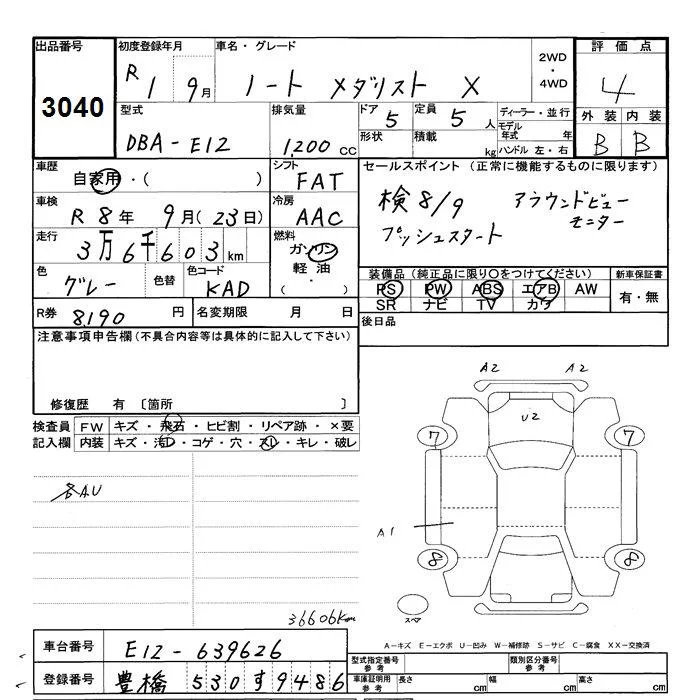 出品番号 初度登録年月 車名・グレード 2WD・4WD 評価点
3040 R1 9月 ノート メダリスト X 4
型式 排気量 ドア 5 定員 5人 ディーラー・並行 外装 内装
DBA-E12 1,200cc 形状 積載 kg モデル年式 年 ハンドル 左・右 B B
車歴 シフト セールスポイント (正常に機能するものに限ります)
自家用・( ) FAT
検8/9 アラウンドビューモニター
車検 冷房
R8年 9月(23日) AAC
プッシュスタート
走行 燃料
3万6千603km ガソリン 軽油 ( ・ )
色 色替 色コード 装備品(純正品に限り○をつけてください) 新車保証書
グレー KAD PS PW ABS エアB AW 有・無
SR ナビ TV カワ
R券 8,190円 名変期限 月 日 後日品
注意事項申告欄(不具合内容等は具体的に記入して下さい)
修復歴 有 〔箇所 〕
検査員 FW キズ・飛石・ヒビ割・リペア跡・×要
記入欄 内装 キズ・汚レ・コゲ・穴・スレ・キレ・破レ
A2 A2
U2
7 7
各AU
A1
8 8
スペア
36606km
A-キズ E-エクボ U-凹み W-補修跡 S-サビ C-腐食 XX-交換済
車台番号 E12-639626
型式指定番号 参考 類別区分番号 参考
登録番号 豊橋 530す9486
車庫証明用 参考 長さ cm 幅 cm 高さ cm